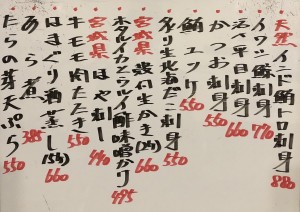 天然 インド鮪トロ刺身 880
イワシ 刺身 770
活〆 平目刺身 660
かつお刺身 550
鮪ユッケ 550
炙り生北海だこ刺身 550
宮城県 殻付生かき(2ヶ) 660
ホタルイカ 酢味噌かけ 495
宮城県 ほや刺し 440
牛モモ肉たたき 550
はまぐり酒蒸し(5ヶ) 660
あら煮 385
たらの芽天ぷら 550